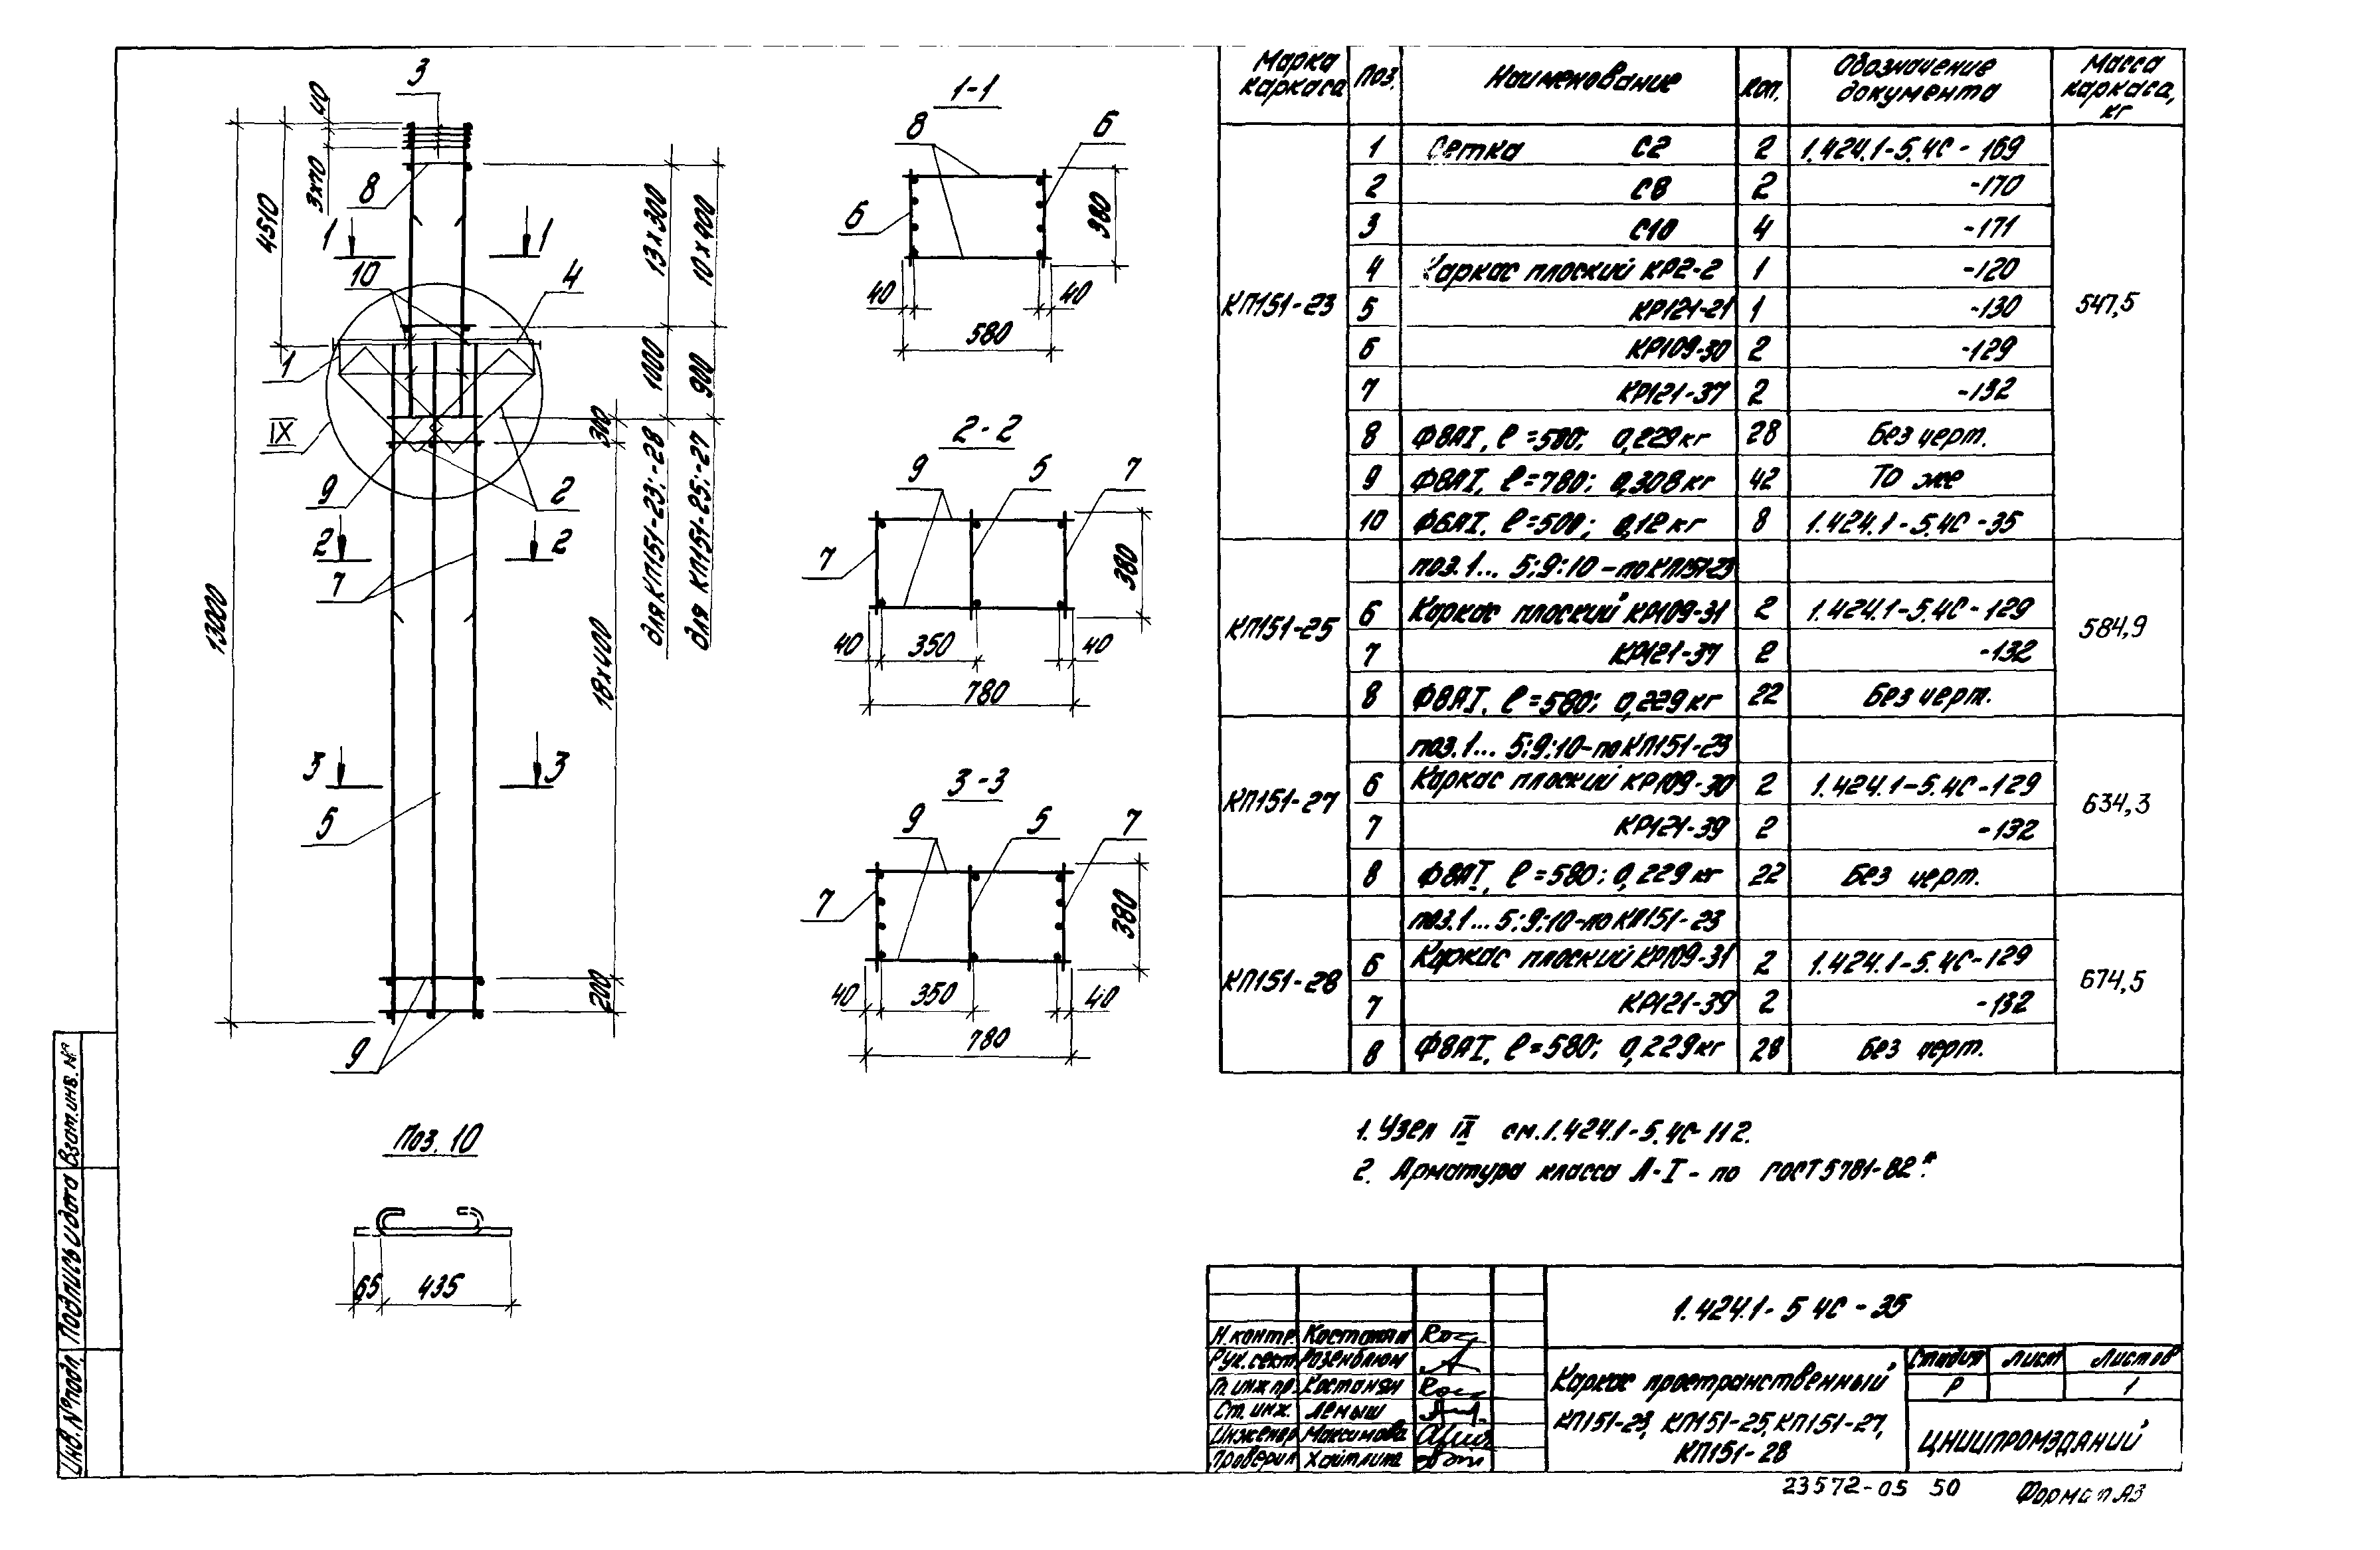 3
40
3x70
4510
13000
8
1 1
10 4
1
IX
9
2
2 2
7
3 3
5
9
13x300
10x400
1000
900
300
18x400
200
для КП151-23;-28
для КП151-25;-27
Поз. 10
65 435
1-1
8 6
6
380
40 40
580
2-2
9 5 7
7
380
40 350 40
780
3-3
9 5 7
7
380
40 350 40
780
Марка каркаса Поз. Наименование Кол. Обозначение документа Масса каркаса, кг
КП151-23 547,5
1 Сетка С2 2 1.424.1-5.4С-169
2 С8 2 -170
3 С10 4 -171
4 Каркас плоский КР2-2 1 -120
5 КР121-21 1 -130
6 КР109-30 2 -129
7 КР121-37 2 -132
8 Ф8АI, ℓ=580; 0,229кг 28 Без черт.
9 Ф8АI, ℓ=780; 0,308кг 42 То же
10 Ф6АI, ℓ=500; 0,12кг 8 1.424.1-5.4С-35
КП151-25 584,9
поз.1... 5;9;10-по КП151-23
6 Каркас плоский КР109-31 2 1.424.1-5.4С-129
7 КР121-37 2 -132
8 Ф8АI, ℓ=580; 0,229кг 22 Без черт.
КП151-27 634,3
поз.1... 5;9;10-по КП151-23
6 Каркас плоский КР109-30 2 1.424.1-5.4С-129
7 КР121-39 2 -132
8 Ф8АI, ℓ=580; 0,229кг 22 Без черт.
КП151-28 674,5
поз.1... 5;9;10-по КП151-23
6 Каркас плоский КР109-31 2 1.424.1-5.4С-129
7 КР121-39 2 -132
8 Ф8АI, ℓ=580; 0,229кг 28 Без черт.
1. Узел IX см.1.424.1-5.4С-112.
2. Арматура класса А-I - по ГОСТ 5781-82*.
1.424.1-5 4С-35
Н.контр. Костанян
Рук.сект. Розенблюм
Гл.инж.пр. Костанян
Ст.инж. Лемыш
Инженер Максимова
Проверил Хаитлина
Каркас пространственный
КП151-23, КП151-25, КП151-27,
КП151-28
Стадия Лист Листов
Р 1
ЦНИИПРОМЗДАНИЙ
23572-05 50 Формат А3
Инв.№подл. Подпись и дата Взам.инв.№